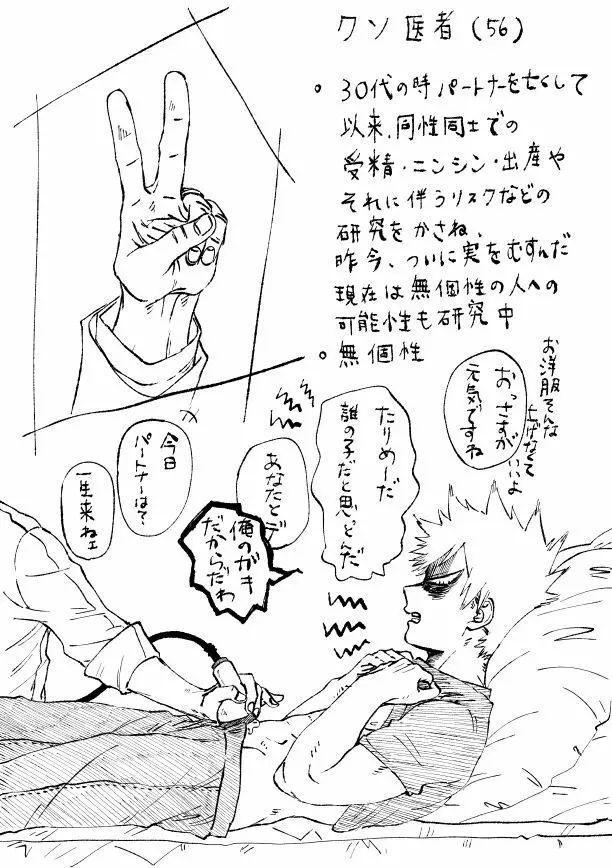 クソ医者(56)
• 30代の時パートナーを亡くして
以来、同性同士での
受精・ニンシン・出産や
それに伴うリスクなどの
研究をかさね、
昨今、ついに実をむすんだ
現在は無個性の人への
可能性も研究中
• 無個性
お洋服そんな
上げなくて
いいよ
おっさすが
元気ですね
たりめーだ
誰の子だと思っとんだ
あなたとデ
俺のガキ
だからだわ
今日
パートナーは?
一生来ねェ